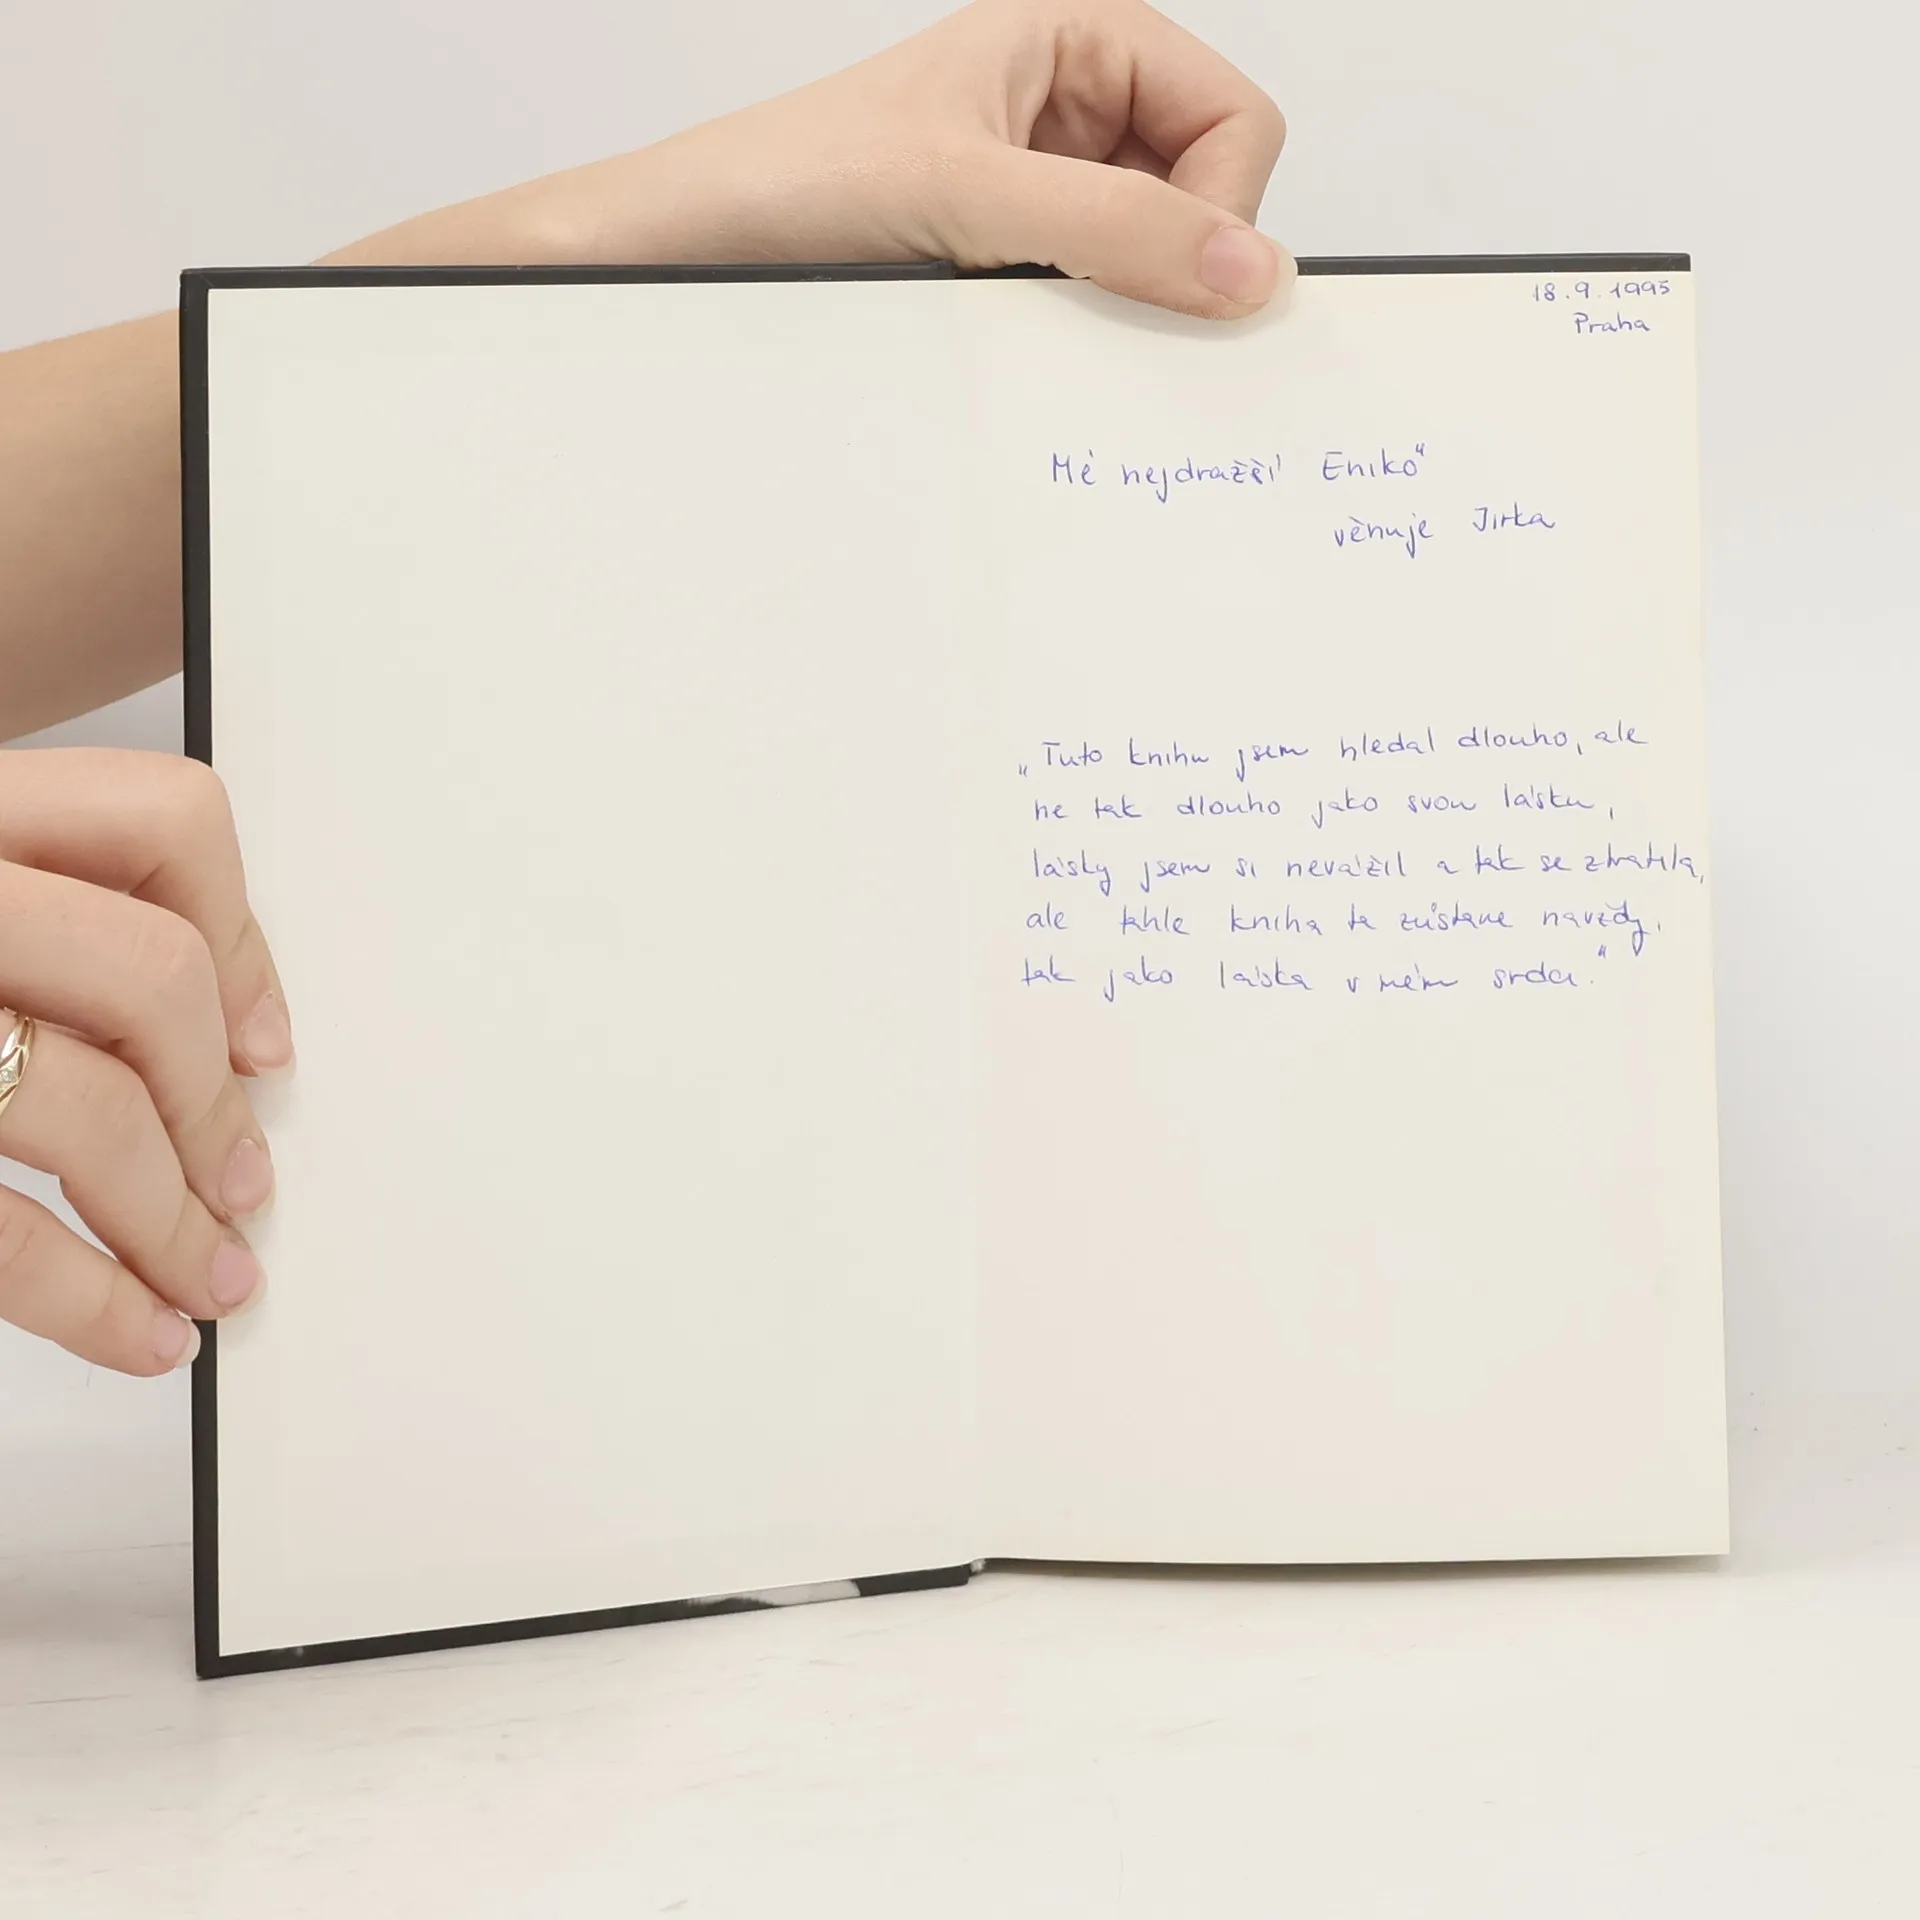 18.9.1995
Praha
Mé nejdražší Enikő
věnuje Jirka
„Tuto knihu jsem hledal dlouho, ale
ne tak dlouho jako svou lásku,
lásky jsem si nevážil a tak se ztratila,
ale tahle kniha ti zůstane navždy,
tak jako láska v mém srdci.“